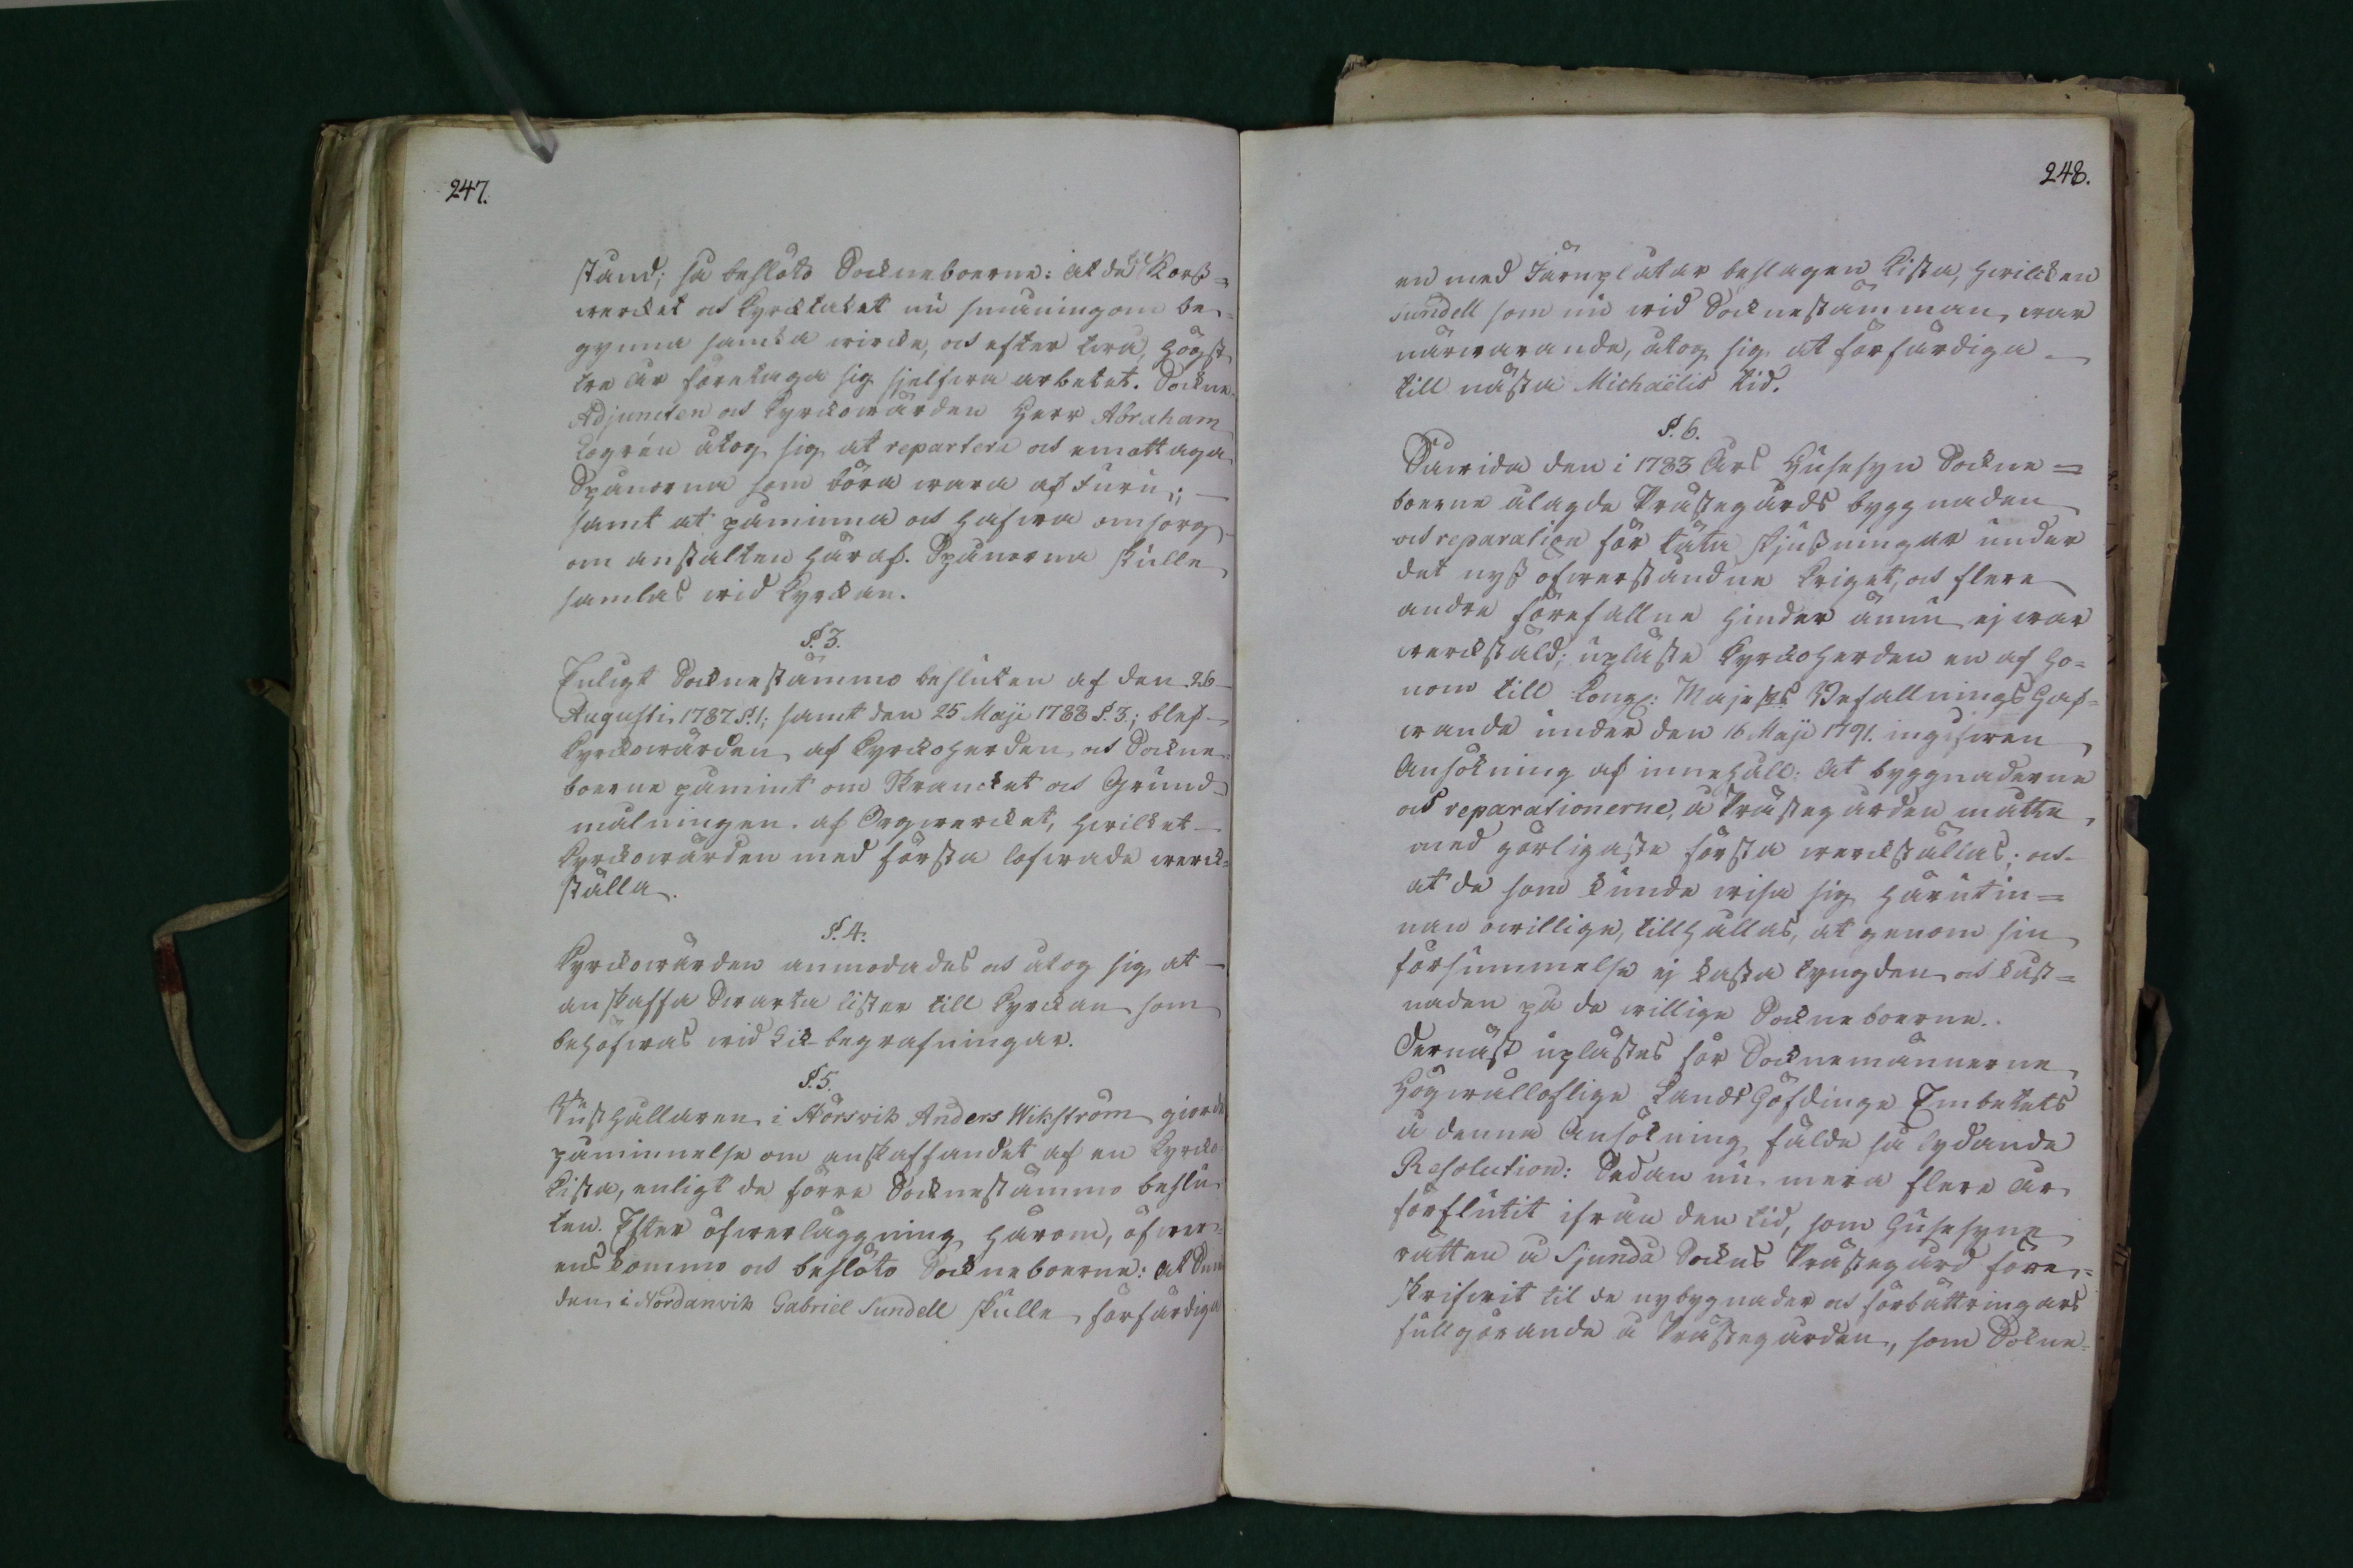 247.
stånd; så beslöto Sockneboerne: At de til Kors-
werket och Kyrktaket nu småningom be-
gynna samla wircke, och efter twå, högst
tre År företaga sig sjelfwa arbetet. Sockne
Adjuncten och Kyrckowärden Herr Abraham
Logrén åtog sig at repartera och emottaga
Spånorna som böra wara af Furu;
samt at påminna och hafwa omsorg
om anstalten häraf. Spånorna skulle
samlas wid Kyrckan.
§. 3.
Enligt Socknestämmo besluten af den 26
Augusti 1787 §. 1; samt den 25 Maji 1788 §. 3; blef
Kyrckowärden af Kyrckoherden och Sockne-
boerne påmint om Skrancket och Grund-
målningen af Orgwercket, hwilcket
Kyrckowärden med första lofwade werck-
ställa.
§. 4.
Kyrckowärden anmodades och åtog sig at
anskaffa Swarta lister till Kyrckan som
behöfwas wid Lik-begrafningar.
§. 5.
Rusthållaren i Störsvik Anders Wikström giorde
påminnelse om anskaffandet af en Kyrcko
Kista, enligt de förre Socknestämmo beslu-
ten. Efter öfwerläggning härom, öfwer-
enskommo och beslöto Sockneboerne: At Sme-
den i Nordanvik Gabriel Sundell skulle förfärdiga
248.
en med Järnplåtar beslagen Kista, hwilcken
Sundell som nu wid Socknestämman war
närwarande, åtog sig at förfärdiga
till nästa Michaëlis tid.
§. 6.
Såwida den i 1783 Års Husesyn Sockne-
boerne ålagde Prästegårds byggnaden
och reparation för täta skjutsningar under
det nyss öfwerståndne Kriget, och flere
andre förefallne hinder ännu ej war
werckstäld; uplästes Kyrckoherden en af ho-
nom till Kongl: Majestets Befallningshaf-
wande under den 16 Maji 1791. ingifwen
Ansökning af innehåll: At byggnaderne
och reparationerne, å Prästegården måtte
med görligaste första werckställas; och
at de som kunde wisa sig härutin-
nan owillige, tillhållas, at genom sin
försummelse ej kasta tyngden och kåst-
naden på de willige Sockneboerne.
Dernäst uplästes för Socknemännerne
Högwälloflige Landshöfdinge Embetets
å denna Ansökning fälde så lydande
Resolution: Sedan nu mera flere År
förflutit ifrån den tid, som Husesyne
rätten å Sjundå Sockns Prästegård före-
skrifwit til de nybygnader och förbättringars
fullgörande å Prästegården, som Sokne-